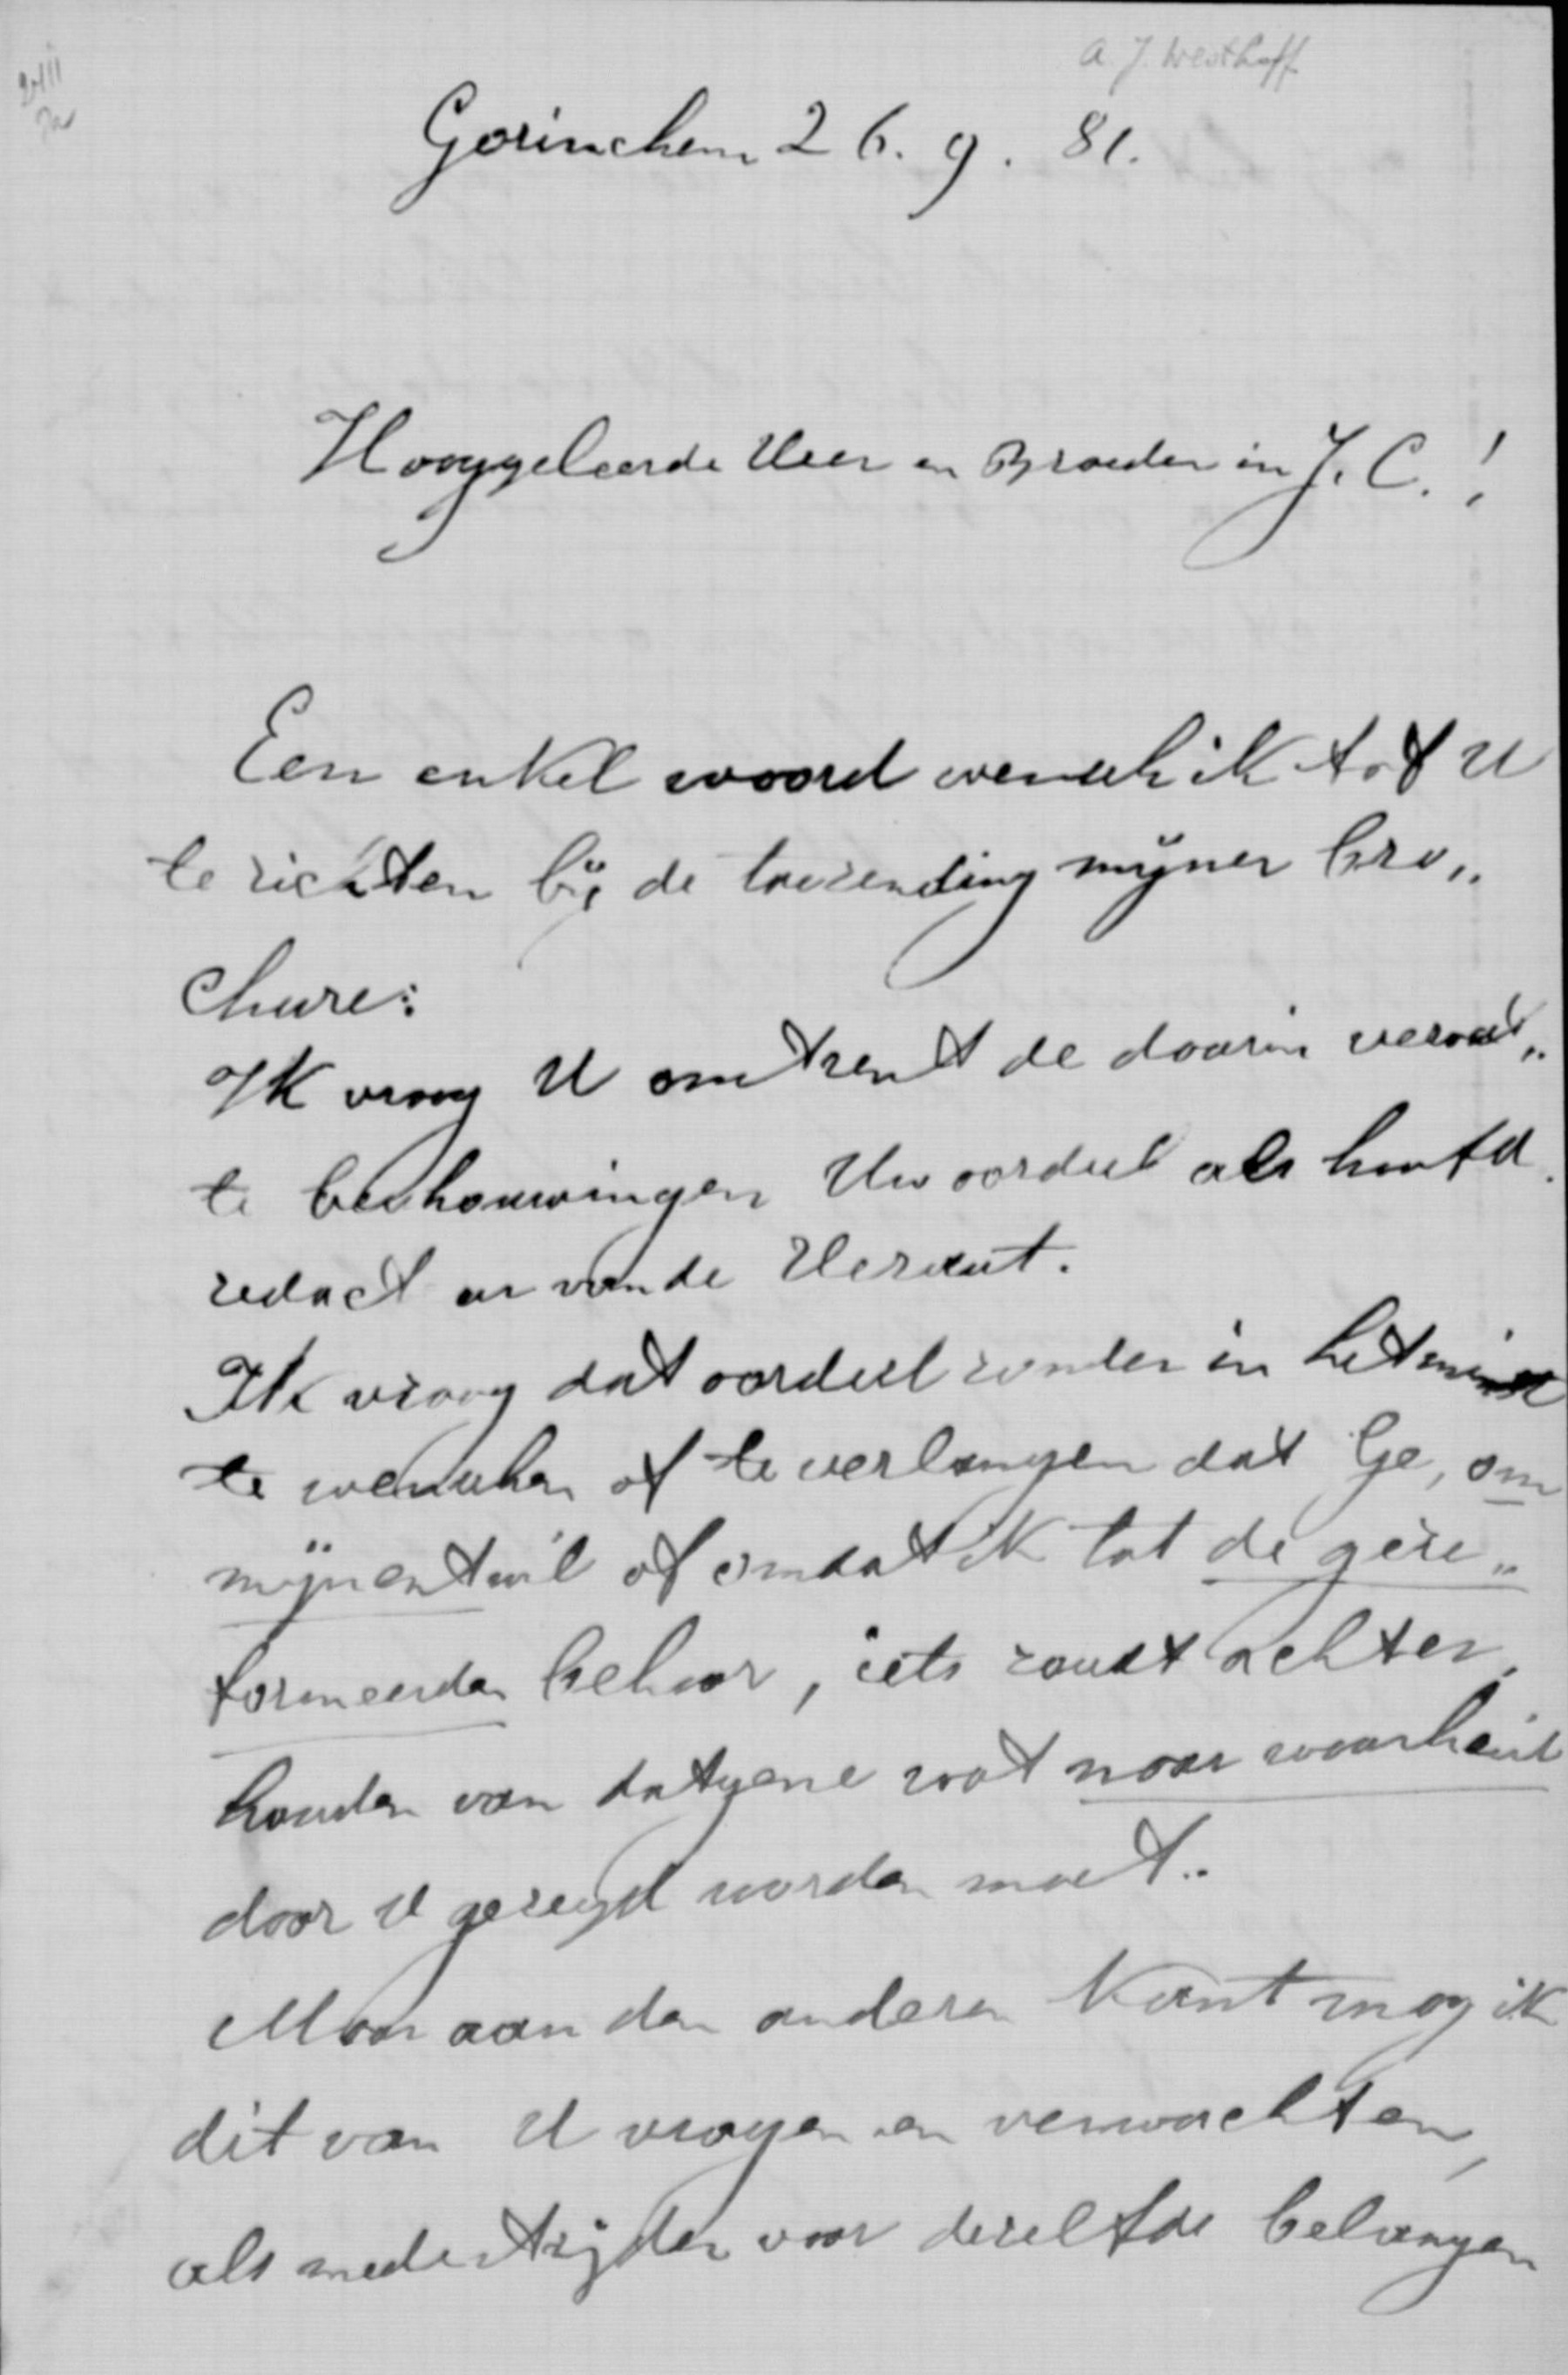 A. J. Westhoff
Gorinchem 26. 9. 81.
Hooggeleerde Heer en Broeder in J. C.!
Een enkel woord wensch ik tot U
te richten bij de toezending mijner bro„
chure:
Ik vraag U omtrent de daarin vervat„
te beschouwingen Uw oordeel als hoofd
redacteur van de Heraut.
Ik vraag dat oordeel zonder in het minst
te wenschen of te verlangen dat Ge, om
mijnentwil of omdat ik tot de gere„
formeerden behoor, iets zoudt achter
houden van datgene wat naar waarheid
door U gezegd worden moet.
Maar aan den anderen kant mag ik
dit van U vragen en verwachten,
als medestrijder voor dezelfde belangen